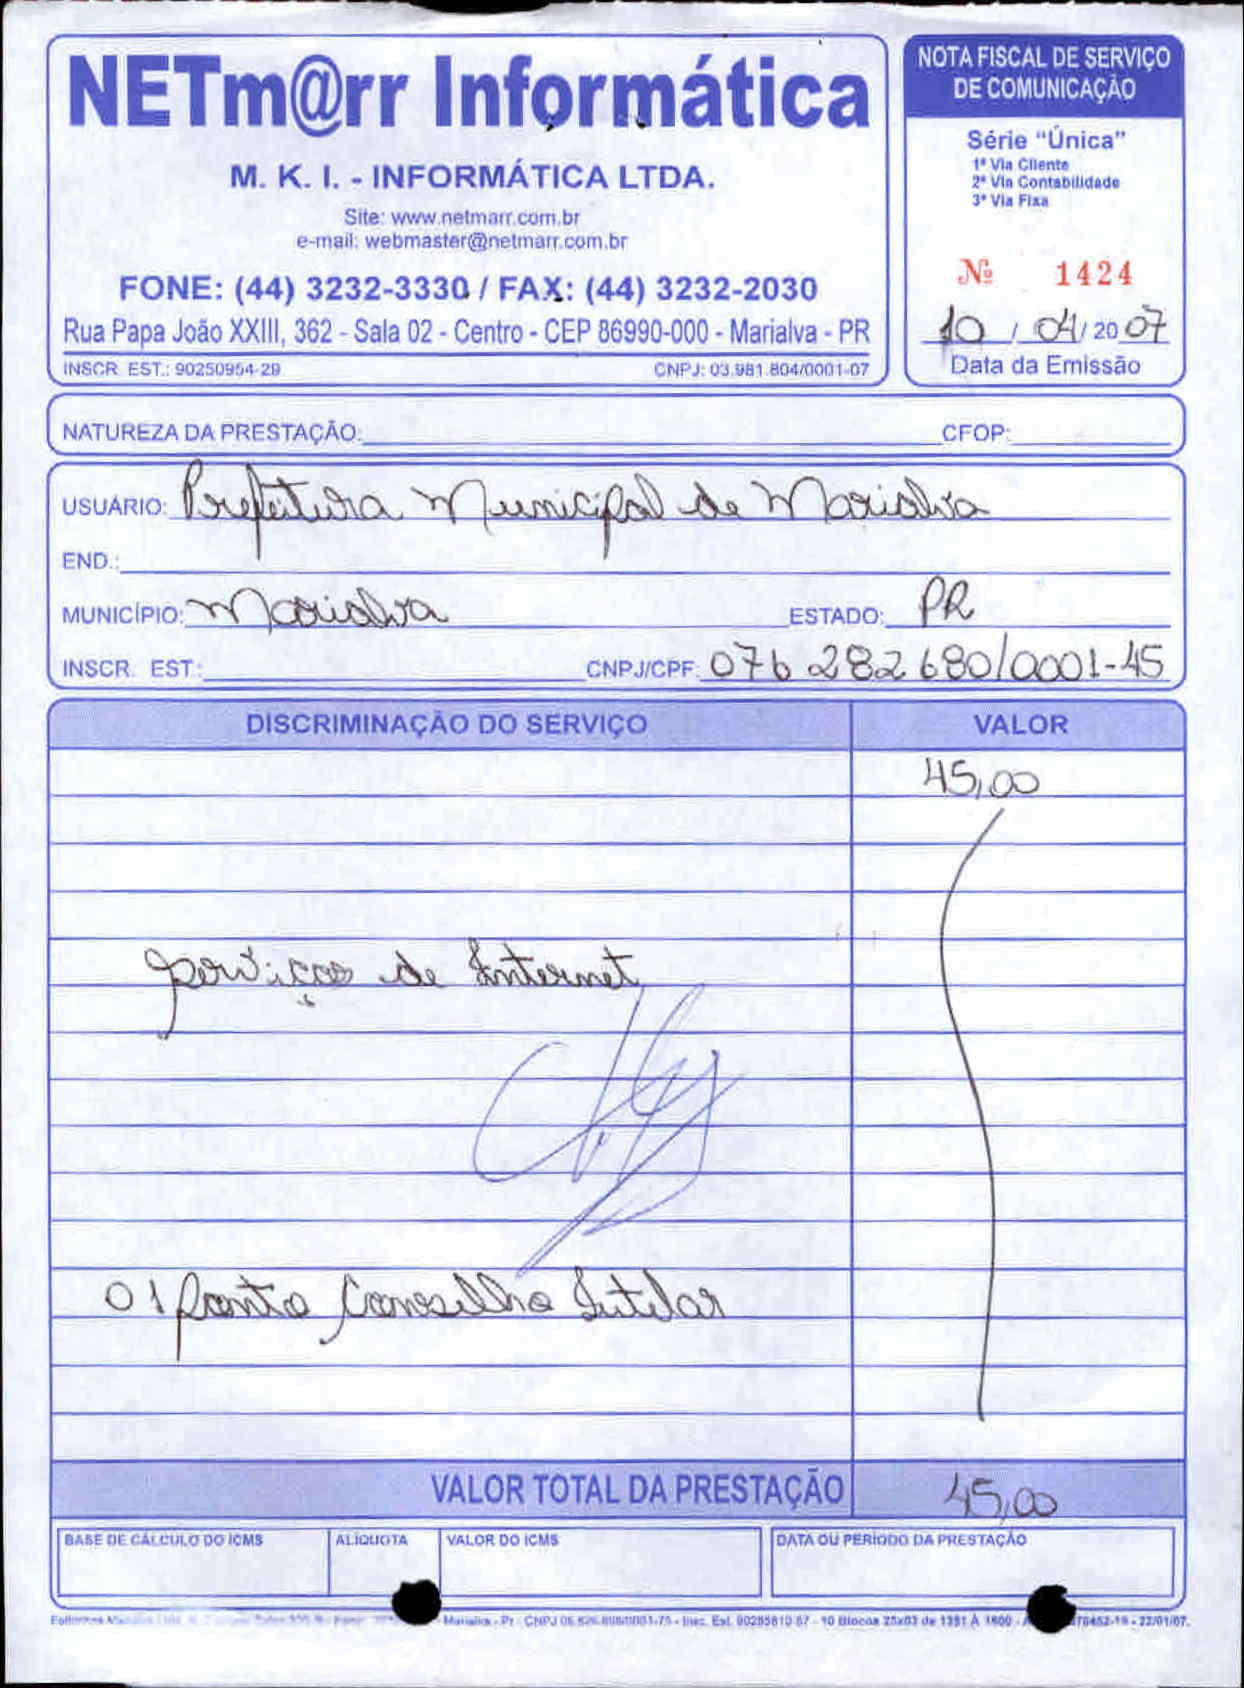 NETm@rr Informática
M. K. I. - INFORMÁTICA LTDA.
Site: www.netmarr.com.br
e-mail: webmaster@netmarr.com.br
FONE: (44) 3232-3330 / FAX: (44) 3232-2030
Rua Papa João XXIII, 362 - Sala 02 - Centro - CEP 86990-000 - Marialva - PR
INSCR. EST.: 90250954-29 CNPJ: 03.981.804/0001-07
NOTA FISCAL DE SERVIÇO
DE COMUNICAÇÃO
Série "Única"
1ª Via Cliente
2ª Via Contabilidade
3ª Via Fixa
Nº 1424
10 / 04 / 2007
Data da Emissão
NATUREZA DA PRESTAÇÃO: CFOP:
USUÁRIO: Prefeitura Municipal de Marialva
END.:
MUNICÍPIO: Marialva ESTADO: PR
INSCR. EST: CNPJ/CPF: 076 282 680/0001-45
DISCRIMINAÇÃO DO SERVIÇO VALOR
45,00
Serviços de Internet
01 Ponto Conselho Tutelar
VALOR TOTAL DA PRESTAÇÃO 45,00
BASE DE CÁLCULO DO ICMS ALÍQUOTA VALOR DO ICMS DATA OU PERÍODO DA PRESTAÇÃO
Marialva - Pr - CNPJ - Insc. Est. 90285810-67 - 10 Blocos 25x03 de 1351 À 1600 - 22/01/07.